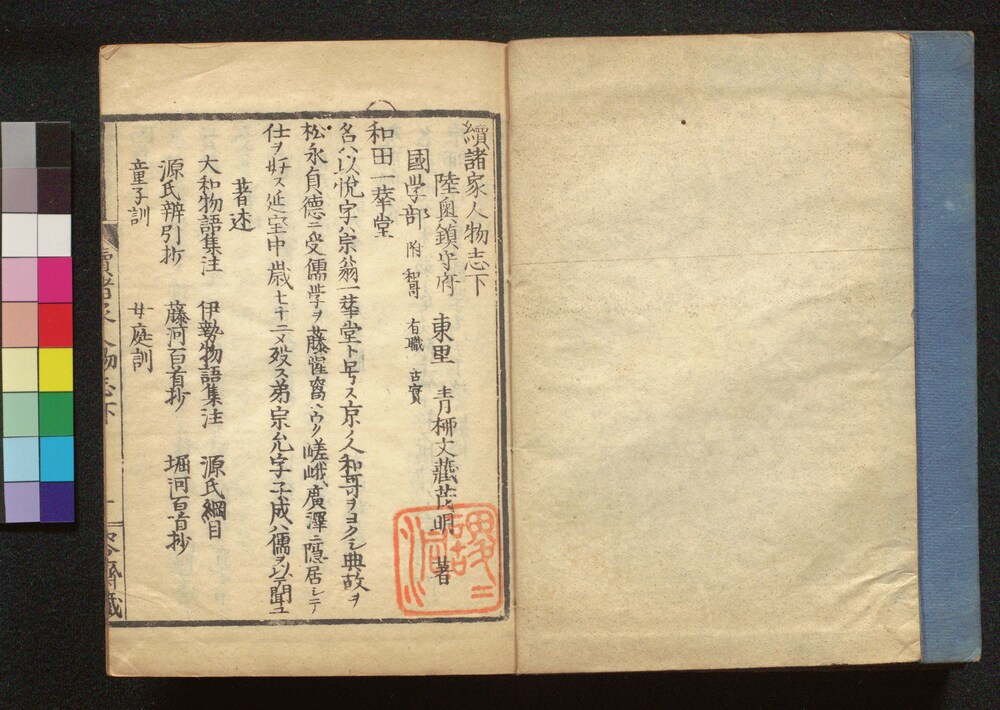 續諸家人物志下
陸奥鎮守府 東里 青栁文藏茂明 著
國学部 附 和哥 有職 古實
和田一華堂
名ハ以悦字ハ宗翁一華堂ト号ス京ノ人和哥ヲヨクシ典故ヲ
松永貞德ニ受儒学ヲ藤惺窩ニウク嵯峨廣澤ニ隠居シテ
仕ヲ好ス延宝中歳七十二メ歿ス弟宗允字子成ハ儒ヲ以テ聞ユ
著述
大和物語集注 伊勢物語集注 源氏綱目
源氏辨引抄 藤河百首抄 堀河百首抄
童子訓 女庭訓
續諸家人物志下